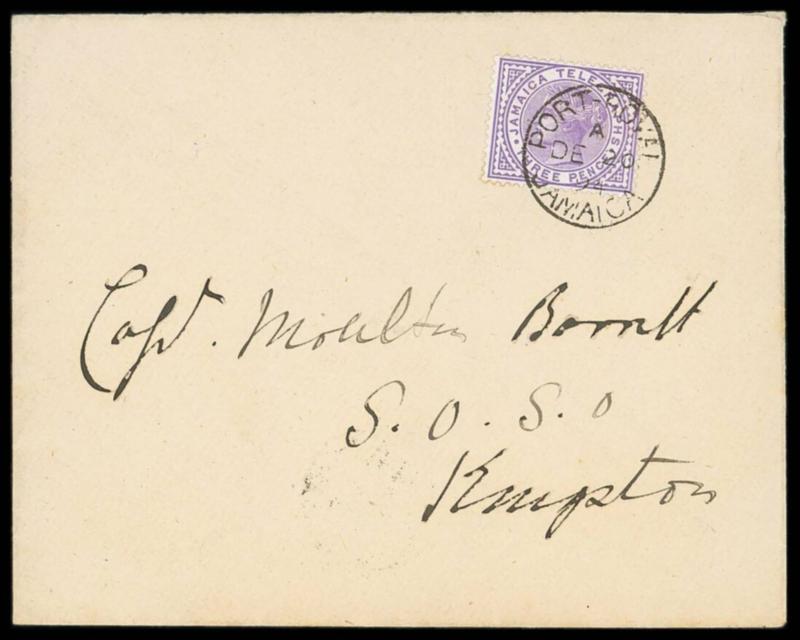 JAMAICA TELE
THREE PENCE
PORT
A
DE 26
94
JAMAICA
Capt. Moulton Barrett
S. O. S. O
Kingston